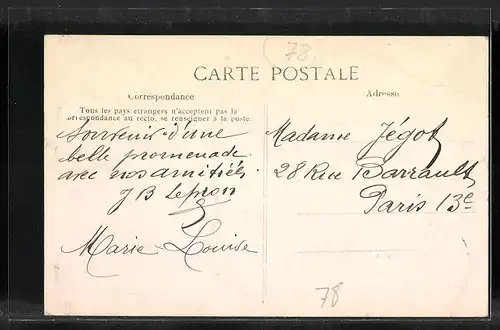 78
CARTE POSTALE
Correspondance
Adresse
Tous les pays étrangers n'acceptent pas la
correspondance au recto, se renseigner à la poste.
Souvenir d'une
belle promenade.
avec nos amitiés.
J B Lepron
Marie-Louise
Madame Jégot
28 Rue Barrault
Paris 13e
78